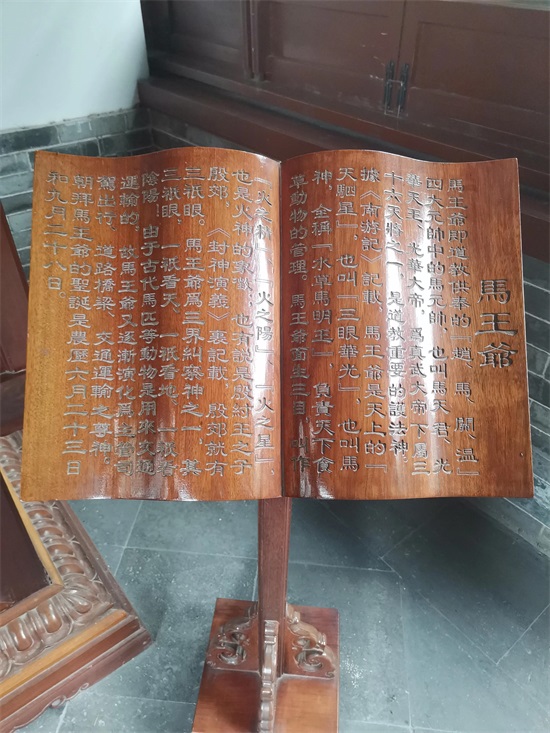 馬王爺
馬王爺即道教供奉的『趙、馬、關、温』
四大元帥中的馬元帥，也叫馬天君，光
華天王、光華大帝，爲真武大帝下屬三
十六天將之一，是道教重要的護法神。
據《南游記》記載，馬王爺是天上的『
天駟星』，也叫『三眼華光』，也叫馬
神，全稱『水草馬明王』，負責天下食
草動物的管理。馬王爺面生三目，叫作
『火之精』、『火之陽』、『火之星』，
也是火神的象徵；也有說是殷紂王之子
殷郊。《封神演義》裏記載，殷郊就有
三祇眼。馬王爺爲三界糾察神之一，其
三祇眼，一祇看天，一祇看地，一祇看
陰陽。由于古代馬匹等動物是用來交通
運輸的，故馬王爺又逐漸演化爲主管司
駕出行、道路橋梁、交通運輸之尊神。
朝拜馬王爺的聖誕是農歷六月二十三日
和九月二十八日。